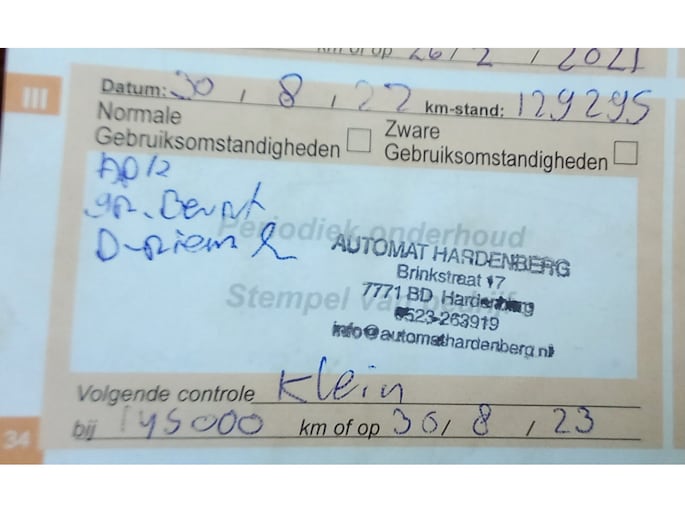 km of op 26 / 2 / 2021
III
Datum: 30 , 8 , 22 km-stand: 129295
Normale Gebruiksomstandigheden
Zware Gebruiksomstandigheden
gr. Beurt
D-riem
Periodiek onderhoud
AUTOMAT HARDENBERG
Brinkstraat 17
7771 BD Hardenberg
Stempel van bedrijf
0523-263919
info@automathardenberg.nl
Volgende controle Klein
bij 145000 km of op 30 / 8 , 23
34